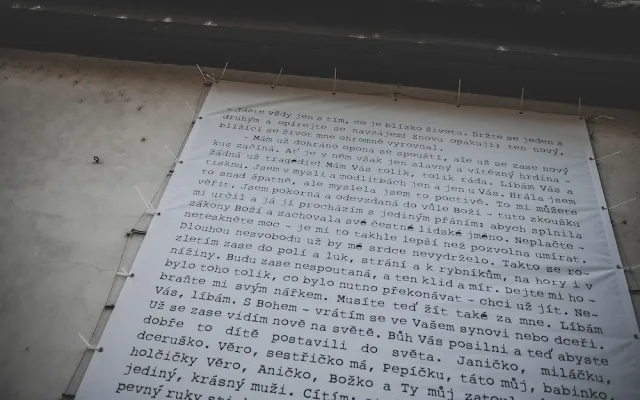 Jděte vždy jen s tím, co je blízko životu. Držte se jeden z
druhým a opírejte se navzájem! Znovu opakuji: ten nový,
blížící se život mne ohromně vyrovnal.
- Mám už dohráno opona se spouští, ale už se zase nový
kus začíná. Ať je v něm však jen slavný a vítězný hrdina -
žádná už tragedie! Mám Vás tolik, tolik ráda. Líbám Vás a
tisknu. Jsem v mysli a modlitbách jen a jen u Vás. Hrála jsem
to snad špatně, ale myslela jsem to poctivě. To mi můžete
věřit. Jsem pokorná a odevzdaná do vůle Boží - tuto zkoušku
mi určil a já jí procházím s jediným přáním: abych splnila
zákony Boží a zachovala své čestné lidské jméno. Neplačte -
neteskněte moc - je mi to takhle lepší než pozvolna umírat.
Dlouhou nesvobodu už by mé srdce nevydrželo. Takto se ro-
zletím zase do polí a luk, strání a k rybníkům, na hory i v
nížiny. Budu zase nespoutaná, a ten klid a mír. Dejte mi ho -
bylo toho tolik, co bylo nutno překonávat - chci už jít. Ne-
braňte mi svým nářkem. Musíte teď žít také za mne. Líbám
Vás, líbám. S Bohem - vrátím se ve Vašem synovi nebo dceři.
Už se zase vidím nově na světě. Bůh Vás posilni a teď abyste
dobře to dítě postavili do světa. Janičko, miláčku,
dceruško. Věro, sestřičko má, Pepíčku, táto můj, babinko,
holčičky Věro, Aničko, Božko a Ty můj
jediný, krásný muži. Cítím:
pevný ruky